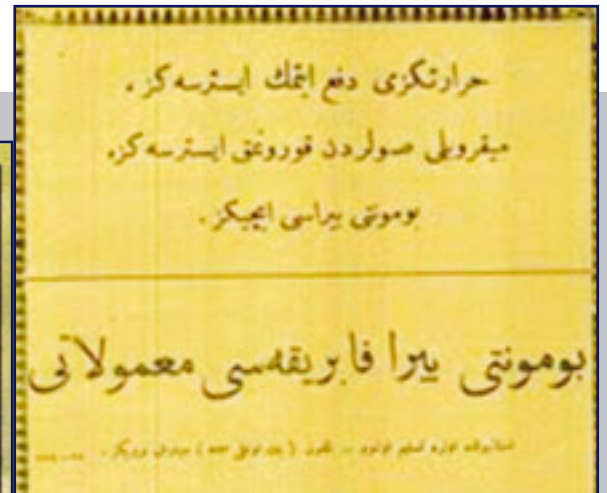 حرارتكزی دفع ایتمك ایسترسه‌كز ،
میقروبلی صولردن قورونمق ایسترسه‌كز،
بومونتی بیراسی ایچیكز .
بومونتی بیرا فابریقه‌سی معمولاتی